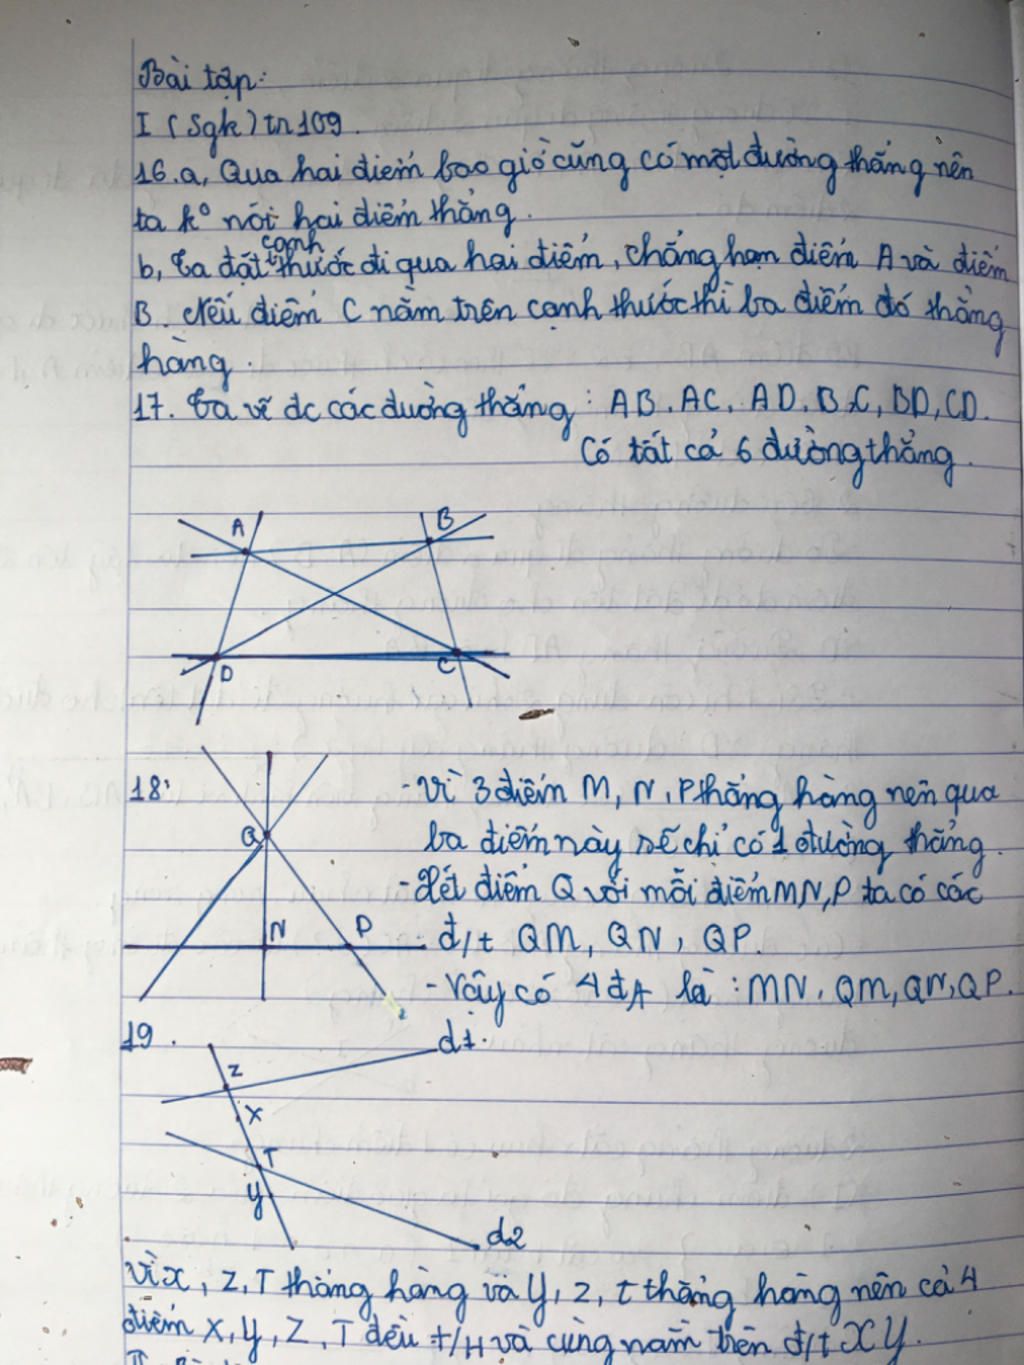 Bài tập:
I (Sgk) tr 109.
16. a, Qua hai điểm bao giờ cũng có một đường thẳng nên
ta k° nói hai điểm thẳng.
b, Ta đặt cạnh thước đi qua hai điểm, chẳng hạn điểm A và điểm
B. Nếu điểm C nằm trên cạnh thước thì ba điểm đó thẳng
hàng.
17. Ta vẽ dc các đường thẳng : AB, AC, AD, BC, BD, CD.
Có tất cả 6 đường thẳng.
A B
D C
18:
- Vì 3 điểm M, N, P thẳng hàng nên qua
ba điểm này sẽ chỉ có 1 đường thẳng.
Q
- Xét điểm Q với mỗi điểm M N, P ta có các
N P
đ/t QM, QN, QP.
- Vậy có 4 đt là : MN, QM, QN, QP.
19.
d1.
Z
X
T
y
d2
Vì x, z, T thẳng hàng và y, z, t thẳng hàng nên cả 4
điểm x, y, Z, T đều t/H và cùng nằm trên đ/t XY.